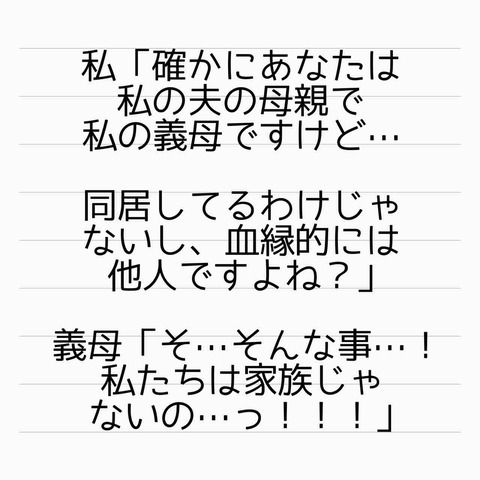 私「確かにあなたは
私の夫の母親で
私の義母ですけど…
同居してるわけじゃ
ないし、血縁的には
他人ですよね？」
義母「そ…そんな事…！
私たちは家族じゃ
ないの…っ！！！」